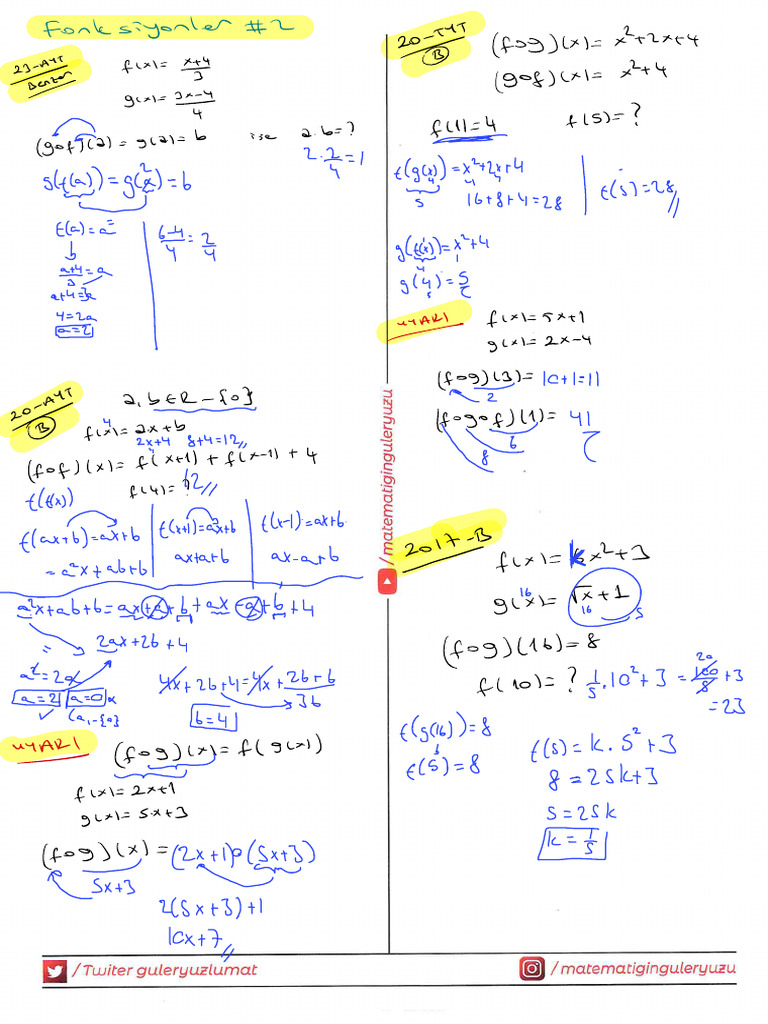 Fonksiyonler #2
23-AYT
Benzer
f(x) = x+4/3
g(x) = 3x-4/4
(gof)(a) = g(2) = b ise a.b = ?
2.2/4 = 1
g(f(a)) = g(2) = b
f(a) = a
a+4/3 = a
a+4=3a
4=2a
a=2
6-4/4 = 2/4
20-AYT
B
a,b ∈ R - {0}
f(x) = ax+b
2x+4 8+4=12
(fof)(x) = f(x+1) + f(x-1) + 4
f(f(x))
f(4) = ? 12
f(ax+b) = ax+b
= a²x+ab+b
f(x+1) = ax+b
ax+a+b
f(x-1) = ax+b
ax-a+b
a²x+ab+b = ax+a+b+ax-a+b+4
= 2ax+2b+4
a²=2a
a=2 a=0 x
4x+2b+4=4x+2b+b
3b
b=4
UYARI
(fog)(x) = f(g(x))
f(x) = 2x+1
g(x) = 5x+3
(fog)(x) = (2x+1)o(5x+3)
5x+3
2(5x+3)+1
10x+7
20-TYT
B
(fog)(x) = x²+2x+4
(gof)(x) = x²+4
f(1)=4 f(5)=?
f(g(x)) = x²+2x+4
4 4 4
5 16+8+4=28
f(5)=28
g(f(x)) = x²+4
4 1
g(4) = 5
UYARI
f(x) = 5x+1
g(x) = 2x-4
(fog)(3) = 10+1=11
2
(fogof)(1) = 41
6
8
2017-B
f(x) = kx²+3
g(x) = √x+1
16 16 5
(fog)(16) = 8
f(10) = ? 1/5.10²+3 = 100/5+3
20
= 23
f(g(16)) = 8
5
f(5) = 8
f(5) = k.5²+3
8 = 25k+3
5=25k
k = 1/5
/matematiginguleryuzu
/Twiter guleryuzlumat
/matematiginguleryuzu